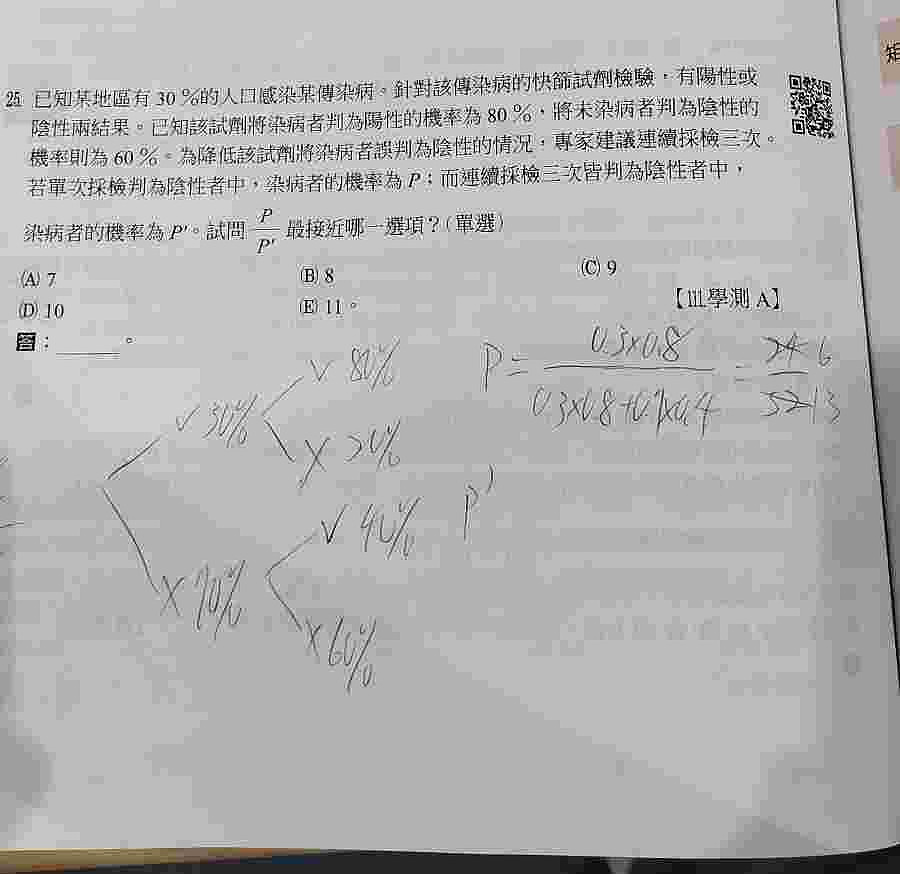 25. 已知某地區有 30 %的人口感染某傳染病。針對該傳染病的快篩試劑檢驗,有陽性或
陰性兩結果。已知該試劑將染病者判為陽性的機率為 80 %,將未染病者判為陰性的
機率則為 60 %。為降低該試劑將染病者誤判為陰性的情況,專家建議連續採檢三次。
若單次採檢判為陰性者中,染病者的機率為 P;而連續採檢三次皆判為陰性者中,
染病者的機率為 P'。試問 P/P' 最接近哪一選項?(單選)
(A) 7
(B) 8
(C) 9
(D) 10
(E) 11。
【111學測 A】
答:______。
P = 0.3×0.8 / 0.3×0.8+0.7×0.4 = 24/52 6/13
∨ 30%
∨ 80%
× 20%
× 70%
∨ 40%
× 60%
P'
矩